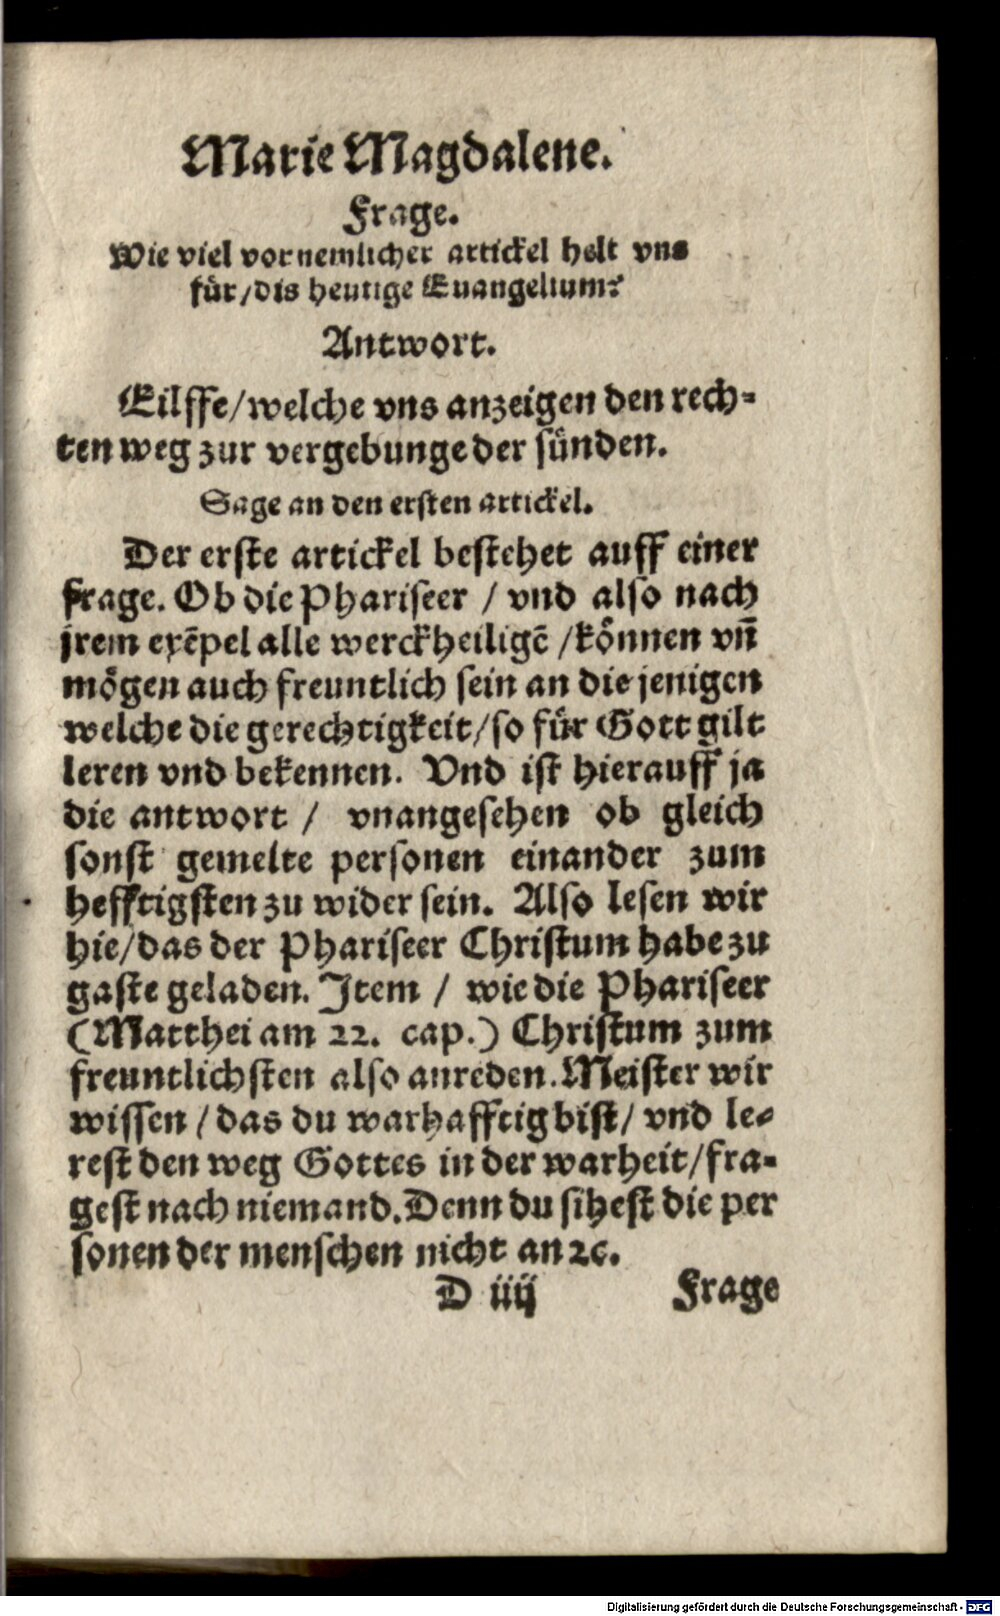 Marie Magdalene.
Frage.
Wie viel vornemlicher artickel helt vns
für/dis heutige Euangelium?
Antwort.
Eilffe/welche vns anzeigen den rech⸗
ten weg zur vergebunge der sünden.
Sage an den ersten artickel.
Der erste artickel bestehet auff einer
frage. Ob die Phariseer / vnd also nach
jrem exẽpel alle werckheiligẽ /können vñ
mögen auch freuntlich sein an die jenigen
welche die gerechtigkeit/so für Gott gilt
leren vnd bekennen. Vnd ist hierauff ja
die antwort / vnangesehen ob gleich
sonst gemelte personen einander zum
hefftigsten zu wider sein. Also lesen wir
hie/das der Phariseer Christum habe zu
gaste geladen. Item / wie die Phariseer
(Matthei am 22. cap.) Christum zum
freuntlichsten also anreden. Meister wir
wissen / das du warhafftig bist/ vnd le⸗
rest den weg Gottes in der warheit/fra⸗
gest nach niemand. Denn du sihest die per
sonen der menschen nicht an ꝛc.
D iiij Frage
Digitalisierung gefördert durch die Deutsche Forschungsgemeinschaft - DFG